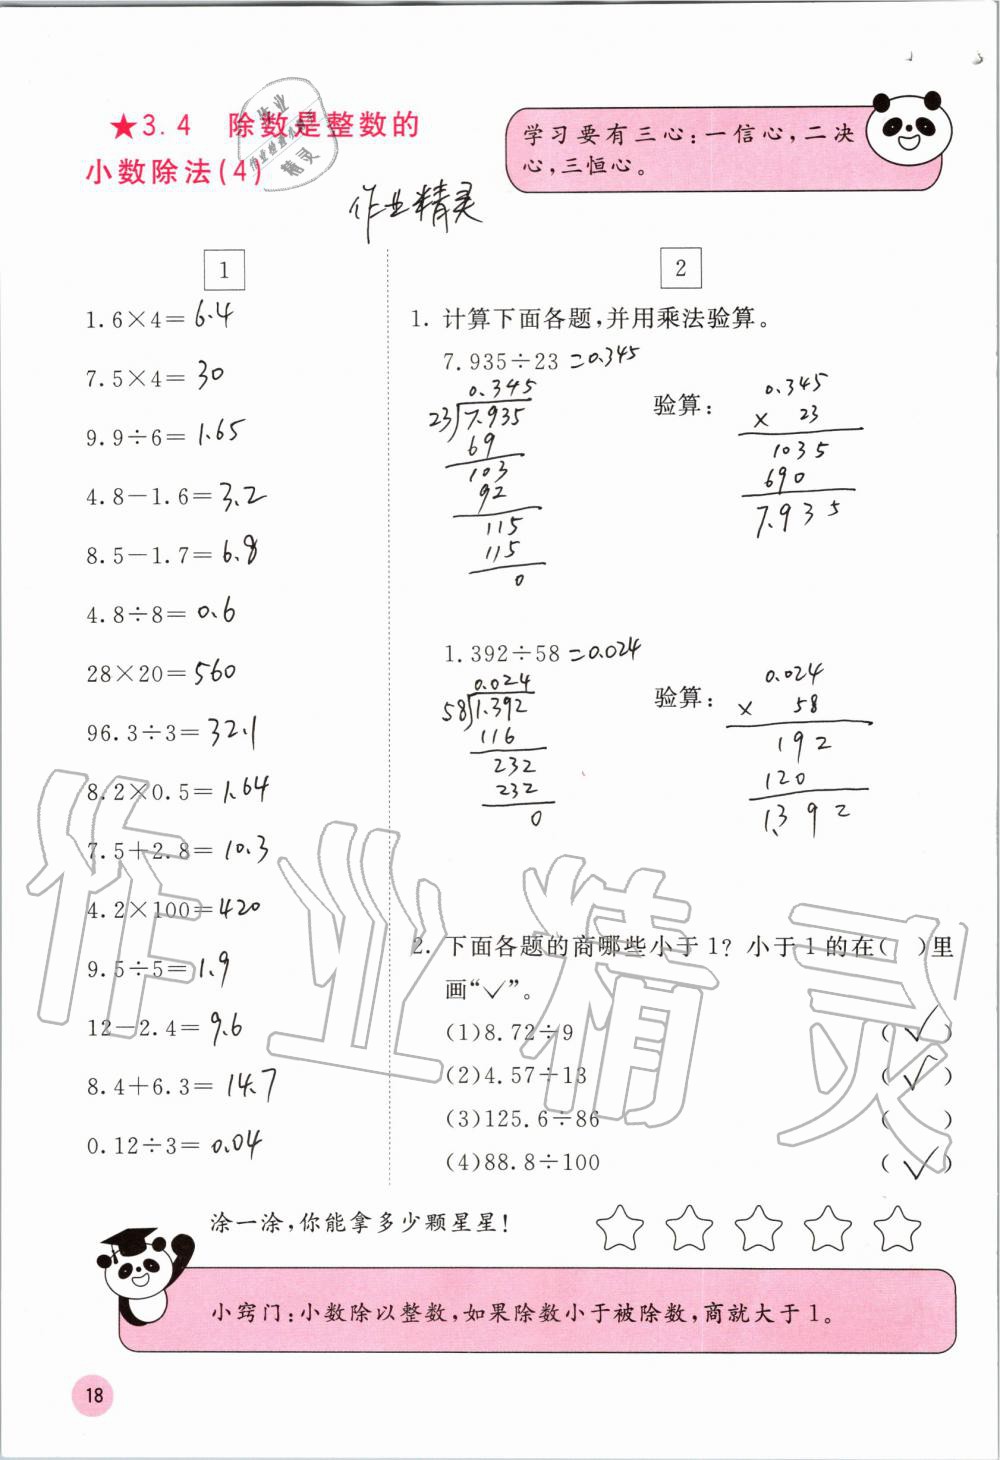 ★3.4 除数是整数的
小数除法(4)
作业
作业检查小帮手
精灵
学习要有三心:一信心,二决
心,三恒心。
作业精灵
1
1.6×4=6.4
7.5×4=30
9.9÷6=1.65
4.8-1.6=3.2
8.5-1.7=6.8
4.8÷8=0.6
28×20=560
96.3÷3=32.1
8.2×0.5=1.64
7.5+2.8=10.3
4.2×100=420
9.5÷5=1.9
12-2.4=9.6
8.4+6.3=14.7
0.12÷3=0.04
2
1. 计算下面各题,并用乘法验算。
7.935÷23=0.345
0.345
23 7.935
69
103
92
115
115
0
验算:
0.345
× 23
1035
690
7.935
1.392÷58=0.024
0.024
58 1.392
116
232
232
0
验算:
0.024
× 58
192
120
1.392
2. 下面各题的商哪些小于1?小于1的在( )里
画“✓”。
(1)8.72÷9 (✓)
(2)4.57÷13 (✓)
(3)125.6÷86 ( )
(4)88.8÷100 (✓)
作业精灵
涂一涂,你能拿多少颗星星!
小窍门:小数除以整数,如果除数小于被除数,商就大于1。
18